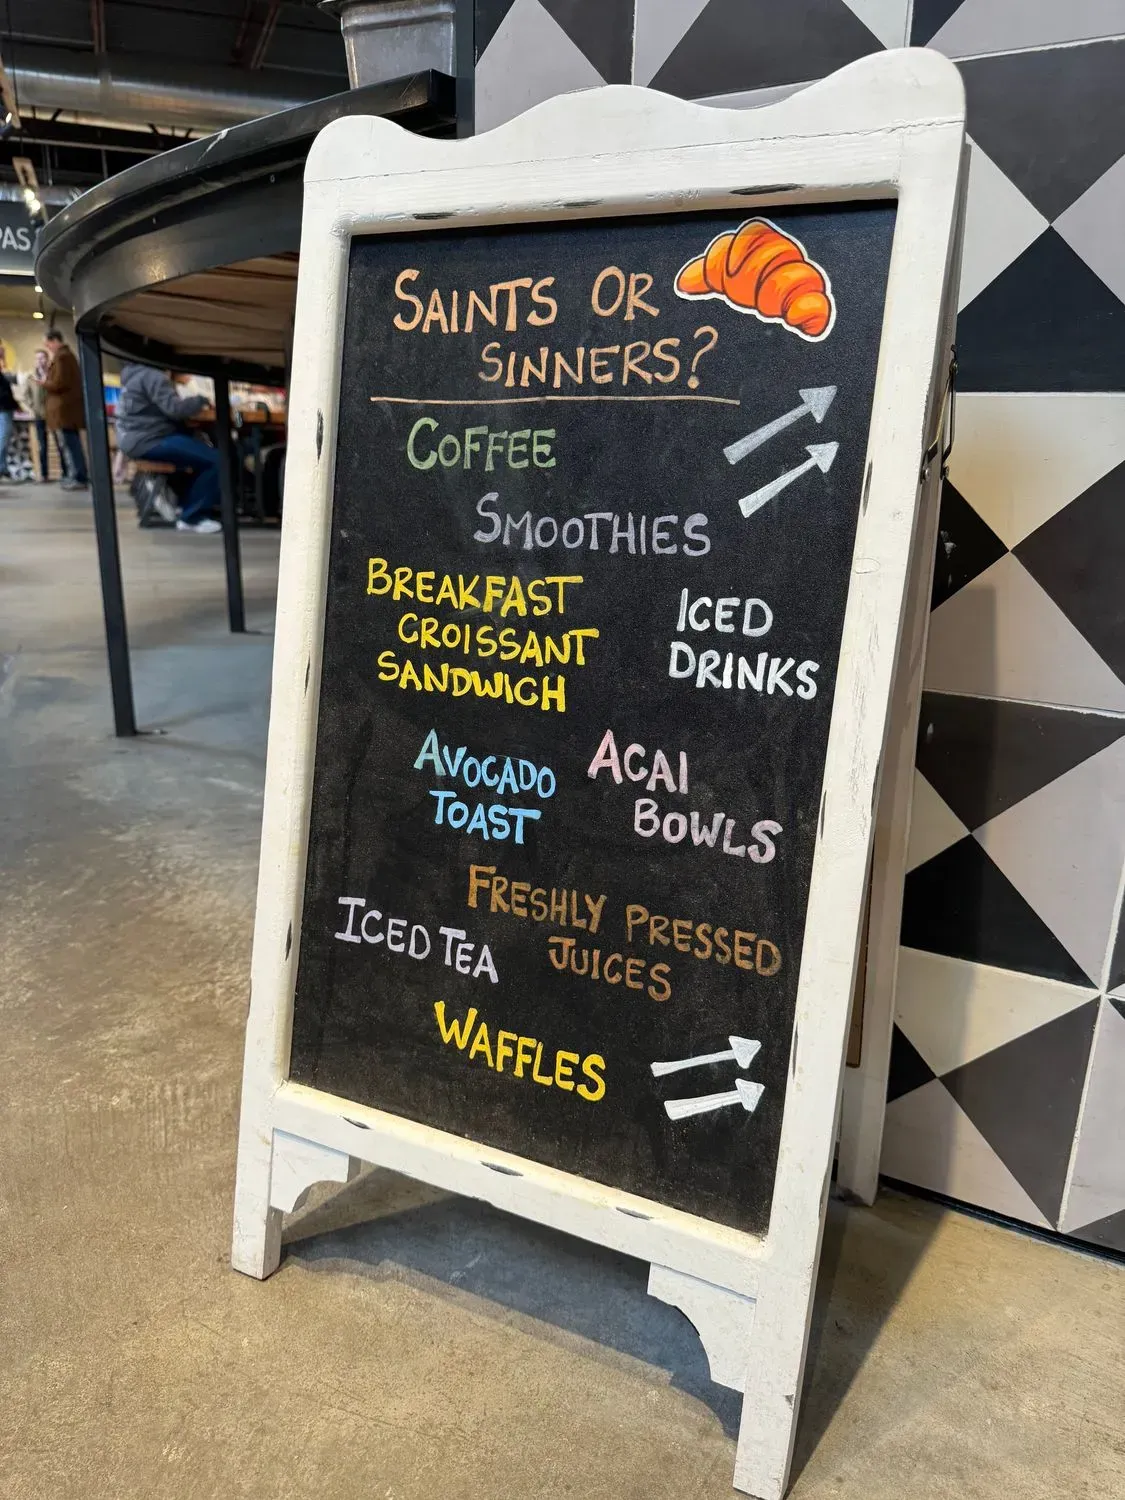 PAS
SAINTS OR
SINNERS?
COFFEE
SMOOTHIES
BREAKFAST
CROISSANT
SANDWICH
ICED
DRINKS
AVOCADO
TOAST
ACAI
BOWLS
FRESHLY PRESSED
JUICES
ICED TEA
WAFFLES